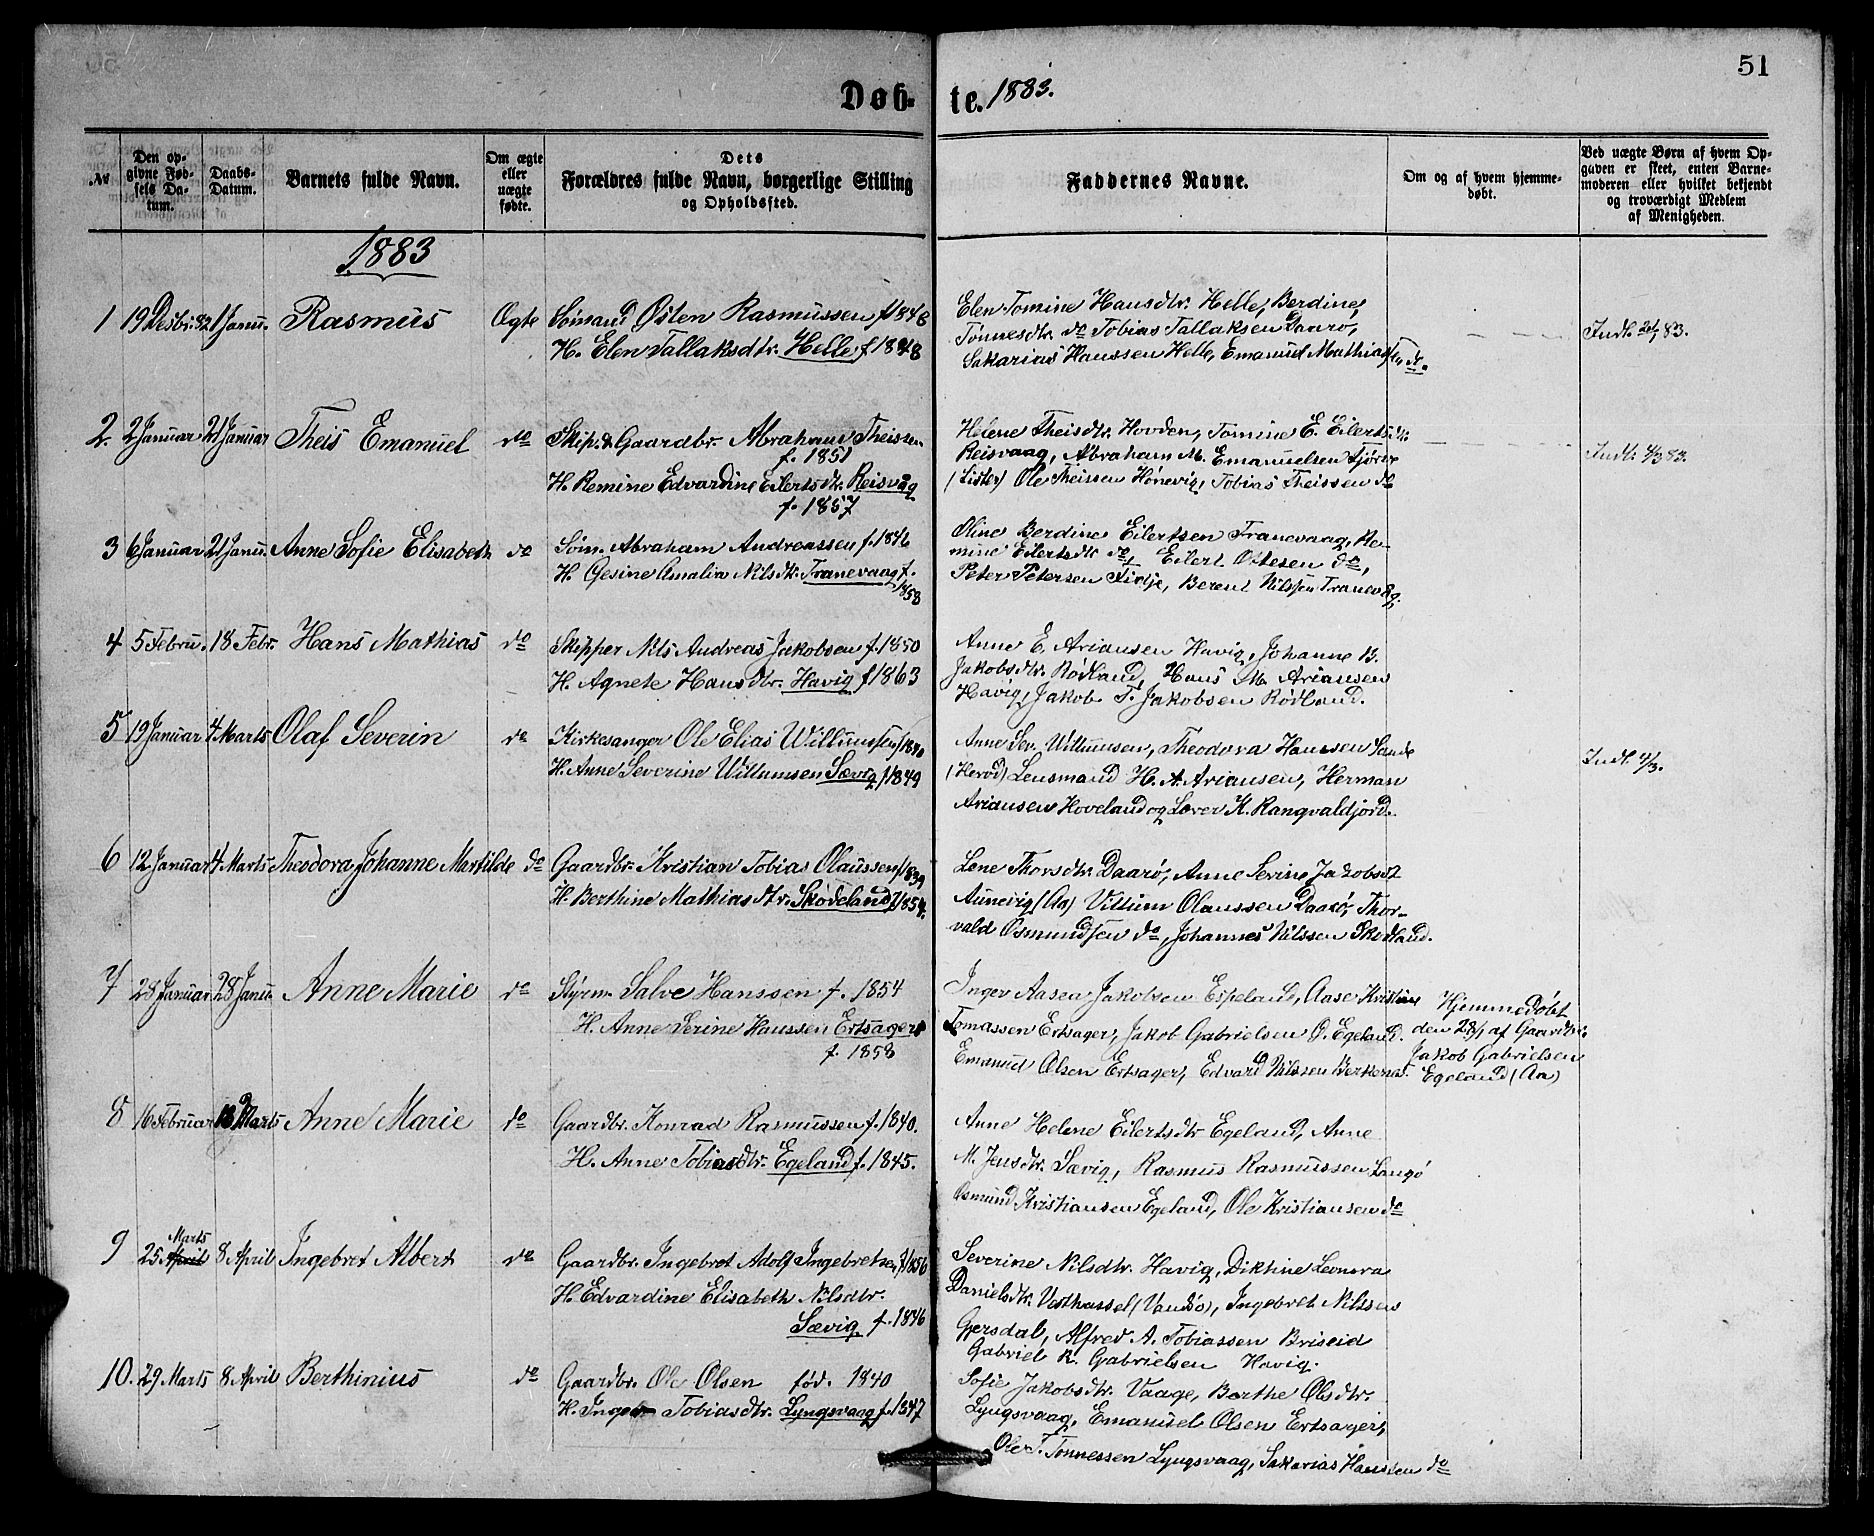 51
Døb-
te. 1883.
№
Den op-
givne Fød-
sels Da-
tum.
Daabs-
Datum.
Barnets fulde Navn.
Om ægte
eller
uægte
fødte.
Dets
Forældres fulde Navn, borgerlige Stilling
og Opholdssted.
Faddernes Navne.
Om og af hvem hjemme-
døbt.
Ved uægte Børn af hvem Op-
gaven er skeet, enten Barne-
moderen eller hvilket bekjendt
og troværdigt Medlem
af Menigheden.
1883
1 19 Desbr. 82 1 Janu. Rasmus Ægte
Sømand Østen Rasmussen f 1848
H. Elen Tallaksdtr. Helle f 1848
Elen Tomine Hansdtr. Helle, Berdine,
Tønnesdtr. do Tobias Tallaksen Daarø,
Sakarias Hanssen Helle, Emanuel Mathiassen do.
Indl. 83.
2. 2 Januar 21 Januar Theis Emanuel do
Skip. & Gaardbr. Abraham Theissen
f. 1851
H. Remine Edvardine Eilertsdtr. Reisvaag
f. 1857
Helene Theisdtr. Hovden, Tomine E. Eilertsdtr
Reisvaag, Abraham M. Emanuelsen Fjørve
(Lister) Ole Theissen Hønevig, Tobias Theissen do
Indl. 4/3 83.
3 6 Januar 21 Janu. Anne Sofie Elisabeth do
Søm. Abraham Andreassen f. 1846
H. Gesine Amalia Nilsdtr. Tranevaag f.
1858
Oline Berdine Eilertsen Tranevaag, Re-
mine Eilertsdtr do, Eilert Ostesen do,
Peter Petersen Tidje, Berent Nilssen Tranevag.
4 5 Febru. 18 Febr. Hans Mathias do
Skipper Nils Andreas Jakobsen f. 1850
H. Agnete Hansdtr. Havig f 1863
Anne E. Ariansen Havig, Johanne B.
Jakobsdtr. Rødland, Hans M. Ariansen
Havig, Jakob T. Jakobsen Rødland.
5 19 Januar 4 Marts Olaf Severin do
Kirkesanger Ole Elias Willumsen f 1840
H. Anne Severine Willumsen Sævig f 1849
Anne Sev. Willumsen, Theodora Hanssen Sande
(Herød) Lensmand H. A. Ariansen, Herman
Ariansen Hoveland og Lærer K. Rangvaldjord.
Indl. 4/3.
6 12 Januar 4 Marts Theodora Johanne Martilde do
Gaardbr. Kristian Tobias Olaussen f 1839
H. Berthine Mathiasdtr. Skødeland f 1854.
Lene Thorsdtr Daarø, Anne Serine Jakobsdt
Aunevig (Aa) Villum Olaussen Daarø, Thor-
vald Osmundsen do, Johannes Nilssen Skødland.
7 28 Januar 28 Janu. Anne Marie do
Styrm. Salve Hanssen f. 1854
H. Anne Serine Hanssen Ertsager
f. 1858
Inger Aasea Jakobsen Espeland, Aase Kristine
Tomassen Ertsager, Jakob Gabrielsen O. Egeland.
Emanuel Olsen Ertsager, Edvard Nilssen Berkenes.
Hjemmedøbt
den 28/1 af Gaardbr.
Jakob Gabrielsen
Egeland (Aa)
8 16 Februar 18 Marts Anne Marie do
Gaardbr. Konrad Rasmussen f. 1840.
H. Anne Tobiasdtr. Egeland f. 1845.
Anne Helene Eilertsdtr Egeland, Anne
M. Jensdtr. Sævig, Rasmus Rasmussen Langø
Osmund Kristiansen Egeland, Ole Kristiansen do
9 25 April Marts 8 April Ingebret Albert do
Gaardbr. Ingebret Adolf Ingebretsen f 1856
H. Edvardine Elisabeth Nilsdtr.
Sævig f. 1846
Severine Nilsdtr. Havig, Diktine Leonora
Danielsdtr. Vesthassel (Vandsø), Ingebret Nilssen
Gjersdal, Alfred A. Tobiassen Briseid
Gabriel R. Gabrielsen Havig.
10. 29 Marts 8 April Berthinius do
Gaardbr. Ole Olsen fød. 1840
H. Inger Tobiasdtr. Lyngsvaag f. 1847
Sofie Jakobsdtr. Vaage, Berthe Olsdtr.
Lyngsvaag, Emanuel Olsen Ertsager,
Ole T. Tønnessen Lyngsvaag, Sakarias Hanssen do